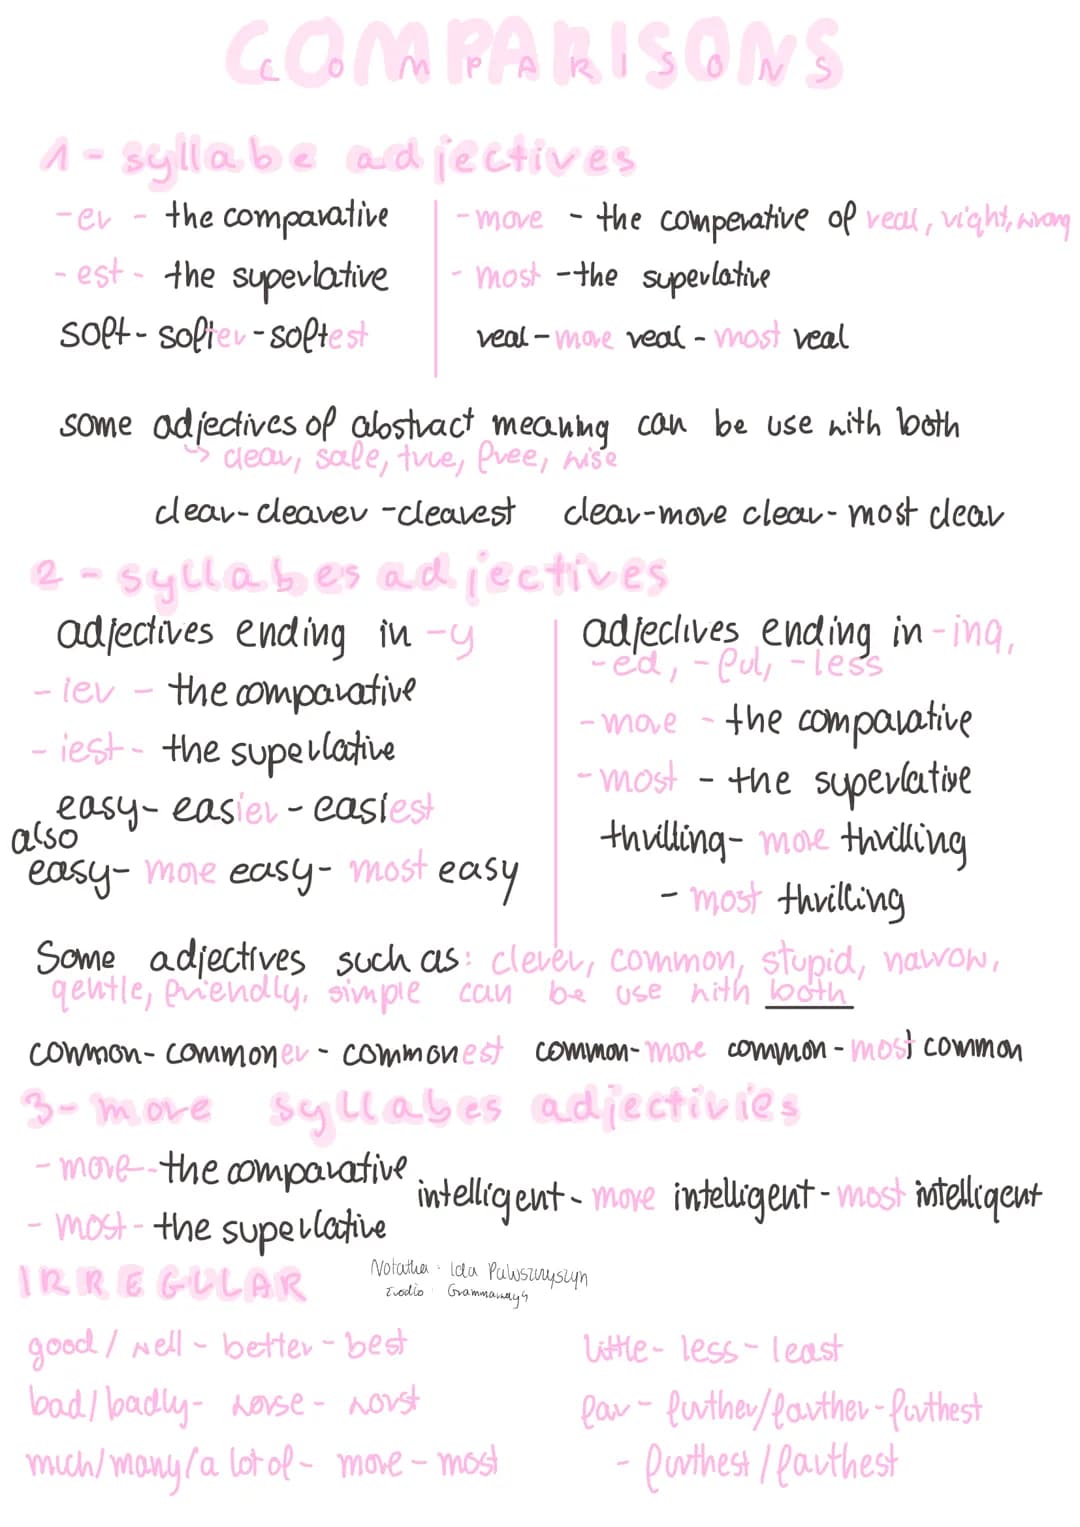 COMPARISONS
COMPARISONS
1 - syllabe adjectives
-er - the comparative
-est - the superlative
soft - softer - softest
-more - the comperative of real, right, wrong
- most - the superlative
real - more real - most real
some adjectives of abstract meaning can be use with both
↳ clear, safe, true, free, wise
clear - clearer - clearest clear - more clear - most clear
2 - syllabes adjectives
adjectives ending in -y
- ier - the comparative
- iest - the superlative
easy - easier - easiest
also
easy - more easy - most easy
adjectives ending in -ing,
-ed, -ful, -less
- more - the comparative
- most - the superlative
thrilling - more thrilling
- most thrilling
Some adjectives such as: clever, common, stupid, narrow,
gentle, friendly, simple can be use with both
common - commoner - commonest common - more common - most common
3 - more syllabes adjectivies
- more - the comparative
- most - the superlative
intelligent - more intelligent - most intelligent
IRREGULAR
Notatka: Ida
źródło: Grammarway 4
good / well - better - best
bad / badly - worse - worst
much / many / a lot of - more - most
little - less - least
far - further/farther - furthest
- furthest / farthest